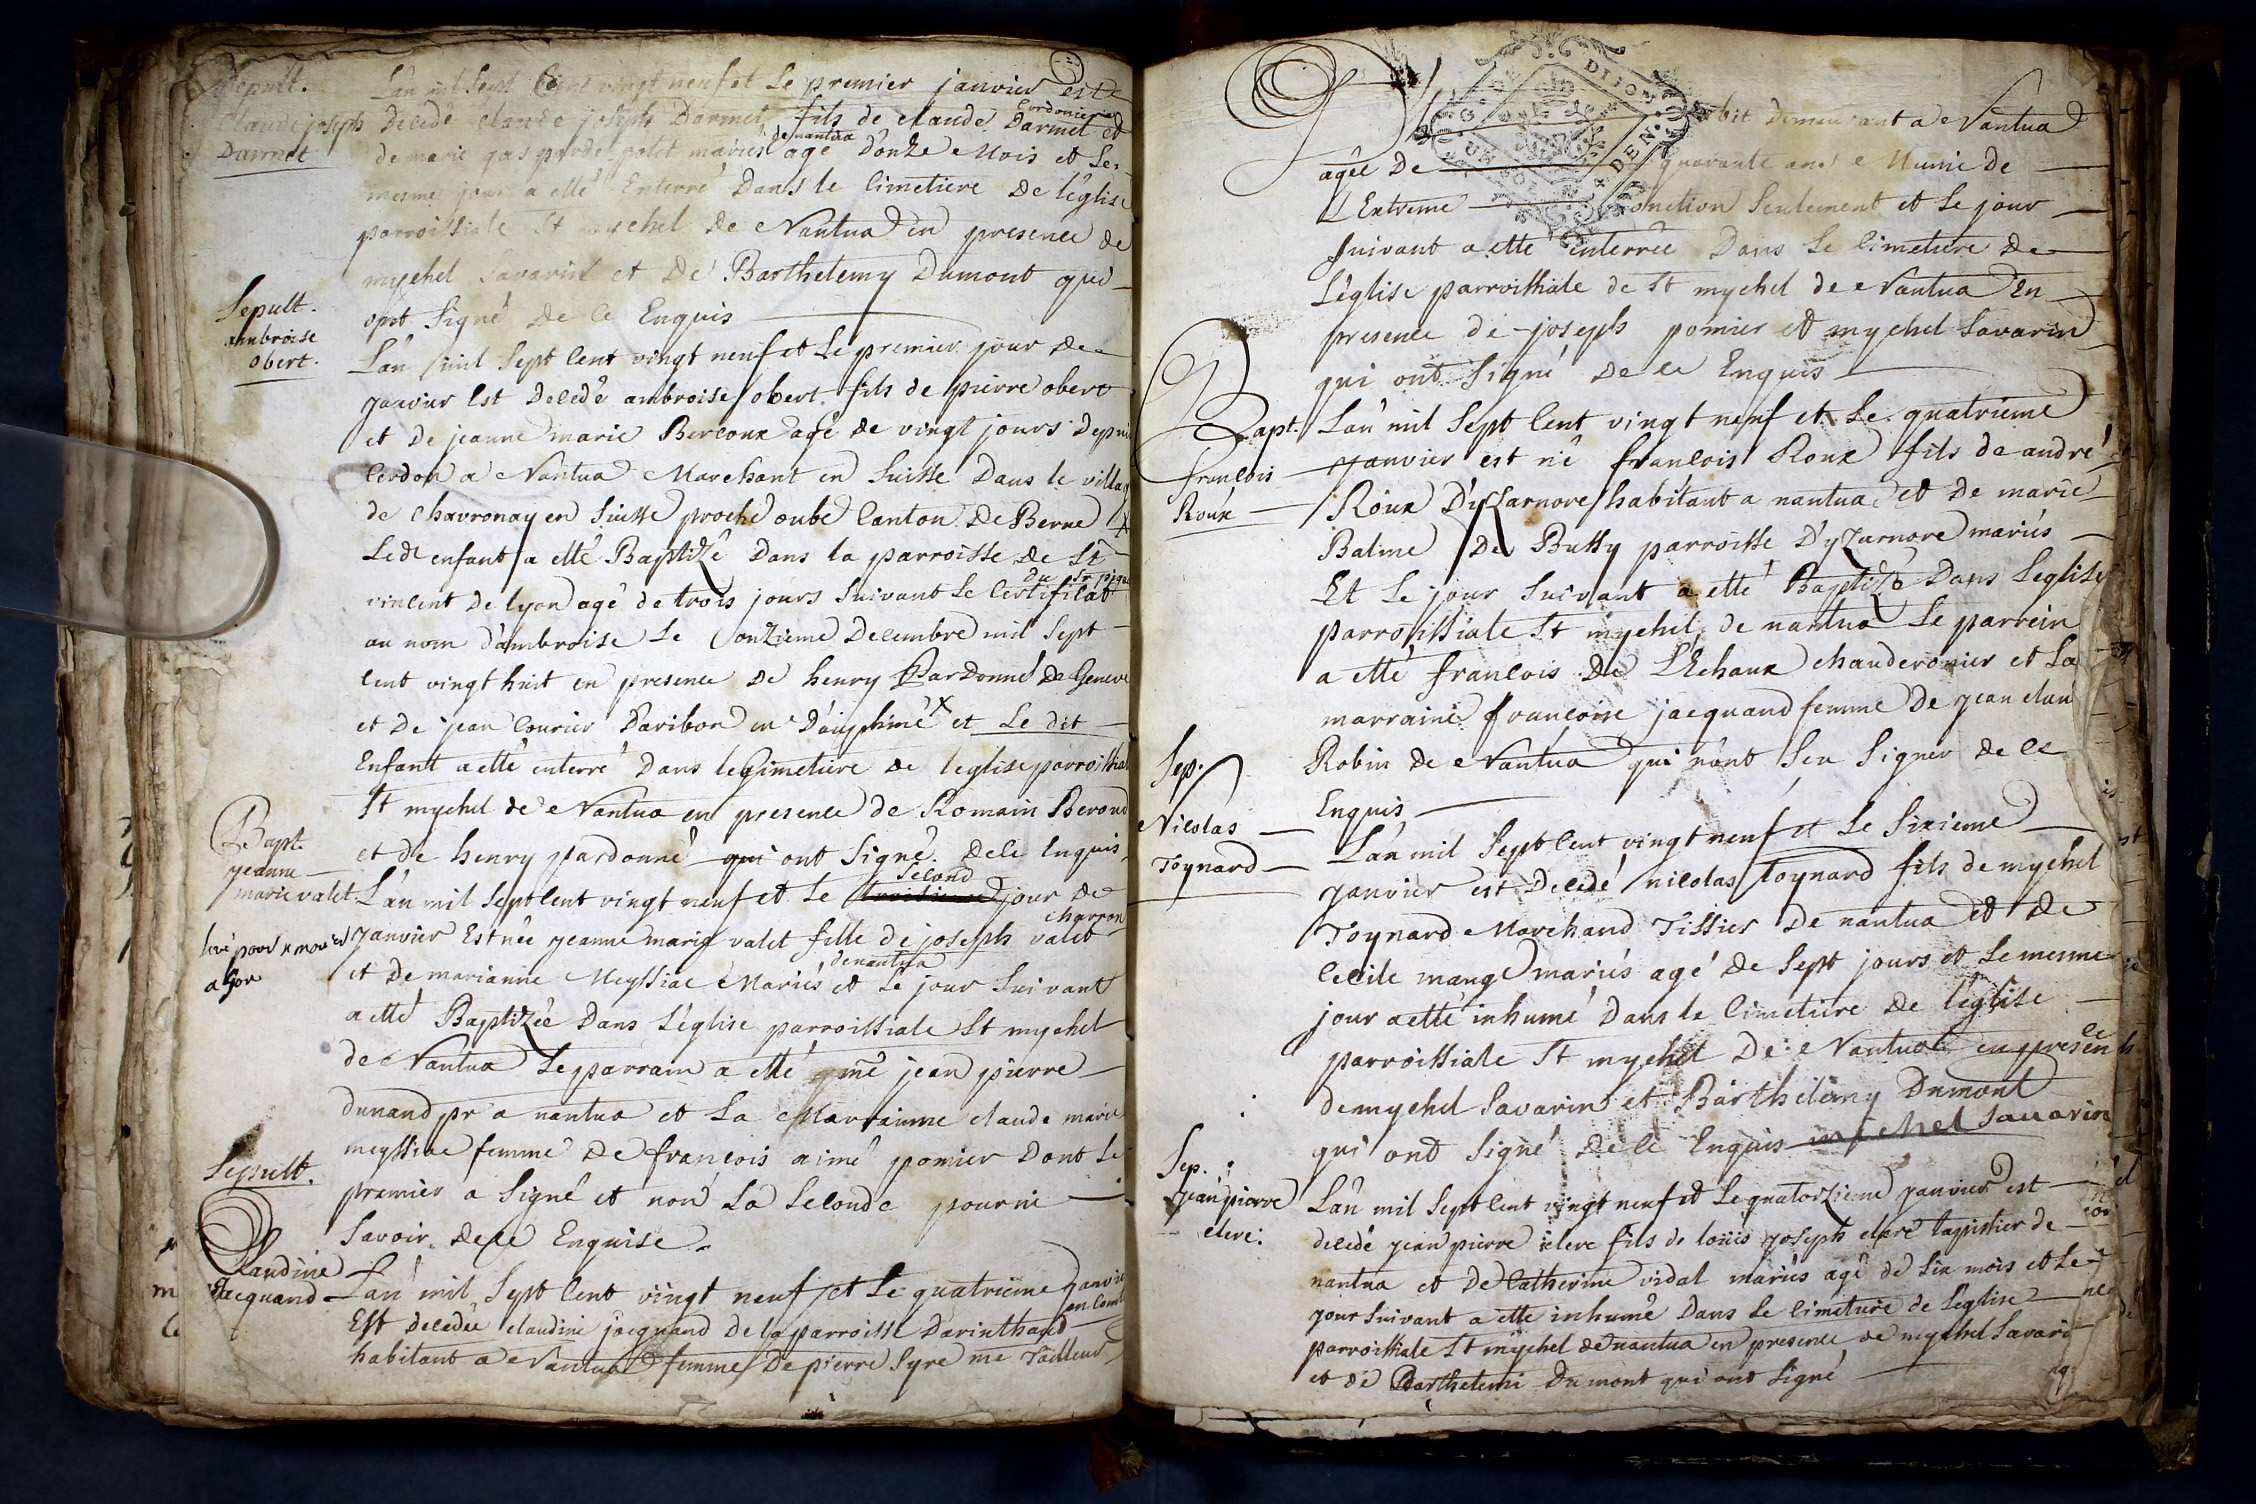 Sepult.
Claude joseph
Darmet
L'an mil Sept Cent vingt neuf et Le premier janvier est
Decedé claude joseph Darmet fils de claude Darmet Cordonier et
de marie gasparde polet mariés de nantua agé D'onze Mois et Le
mesme jour a etté Enterré Dans le Cimetiere De l'église
parroissiale St mychel De Nantua en presence de
mychel savarin et De Barthelemy Dumont qui
ont Signé De Ce Enquis
Sepult.
ambroise
obert.
L'an mil Sept Cent vingt neuf et Le premier jour de
janvier Est Decedé ambroise obert fils de pierre obert
et De jeanne marie Bercoux agé de vingt jours Depuis
Cerdon a Nantua Marchant en Suisse Dans le village
de Chavronay en Suisse proche oube Canton De Berne
Ledt enfant a etté Baptizé Dans la parroisse De St
vincent De lyon agé de trois jours Suivant Le Certificat du Sr
au nom d'ambroise Le onzieme Decembre mil Sept
Cent vingt huit en presence De henry Pardonné De Geneve
et De jean Courier Daribon en Dauphiné et Le dit
Enfant a etté enterré Dans le Cimetiere De l'eglise parroissiale
St mychel de Nantua en presence de Romain Berond
et de henry pardonné qui ont Signé. De Ce Enquis
Bapt.
jeanne
marie valet
L'an mil Sept Cent vingt neuf et Le troisieme Second jour De
janvier Est née jeanne marie valet fille de joseph valet charron
et De marianne Meyssiac Mariés de nantua et Le jour Suivant
a etté Baptizée Dans L'église parroissiale St mychel
de Nantua Le parrain a etté jean pierre
dunand pr a nantua et La Marrainne claude marie
meyssiac femme De francois aimé pomier Dont Le
premier a Signé et non La Seconde pour ne
Savoir De Ce Enquise.
Sepult.
Claudine
Jacquand
L'an mil Sept Cent vingt neuf et Le quatrieme janvier
Est decedée claudine jacquand De la parroisse Darinthand en Comté
habitant a Nantua femme De pierre Syre me Tailleur
obit Demeurant a Nantua
agée De quarante ans Munie de
L'Extreme onction Seulement et Le jour
suivant a etté enterrée Dans Le Cimetiere De
L'église parroissiale de St mychel de Nantua En
presence de joseph pomier et mychel Savarin
qui ont Signé De Ce Enquis
Bapt.
francois
Roux
L'an mil Sept Cent vingt neuf et Le quatrieme
janvier est né francois Roux fils de andré
Roux D'yzarnore habitant a nantua et De marie
Balme De Bussy parroisse D'yzarnore mariés
Et Le jour Suivant a etté Baptizé Dans L'eglise
parroissiale St mychel de nantua Le parrein
a etté francois De L'Echaux chauderonier et La
marraine francoise jacquand femme De jean clau
Robin De Nantua qui n'ont Seu Signer de Ce
Enquis
Sep.
Nicolas
Toynard
L'an mil Sept Cent vingt neuf et Le Sixieme
janvier est Decedé nicolas toynard fils de mychel
Toynard Marchand Tissier De nantua et De
Cecile mange mariés agé de Sept jours et Le mesme
jour a etté inhumé Dans le Cimetiere De l'église
parroissiale St mychel De Nantua en presence
de mychel Savarin et Barthelemy Dumont
qui ont Signé De Ce Enquis mychel Savarin
Sep.
jean pierre
clere.
L'an mil Sept Cent vingt neuf et Le quatorzieme janvier est
decedé jean pierre clere fils de loüis joseph clere tapissier de
nantua et De Catherine vidal mariés agé de Six mois et Le
jour Suivant a etté inhumé Dans Le Cimetiere de L'eglise
parroissiale St mychel de nantua en presence de mychel Savari
et de Barthelemi Dumont qui ont Signé